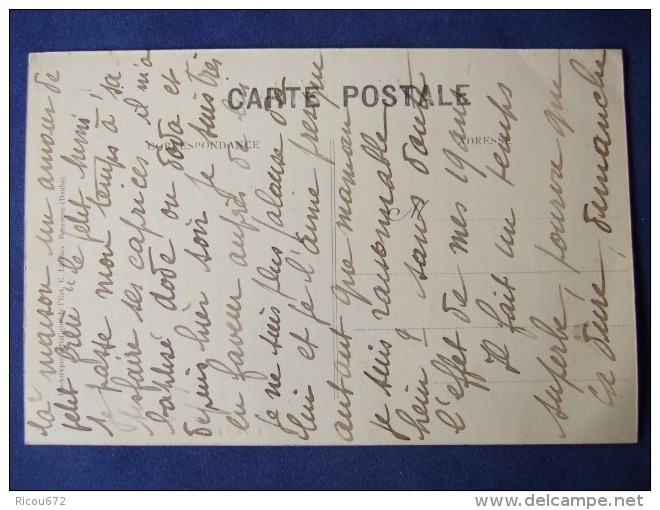 la maison un amour de
petit frère : le petit Henri
Je passe mon temps à sa-
tisfaire ses caprices, il m'a
baptisé dode ou doda et
depuis hier soir je suis très
en faveur auprès de lui
Je ne suis plus jalouse de
lui et je l'aime presque
autant que maman
je suis raisonnable
hein ? sans doute
l'effet de mes 19 ans
Il fait un temps
superbe, pourvu que
ça dure, dimanche
CARTE POSTALE
CORRESPONDANCE
ADRESSE
Besançon (Doubs)
Ricou672
http://www.delcampe.net